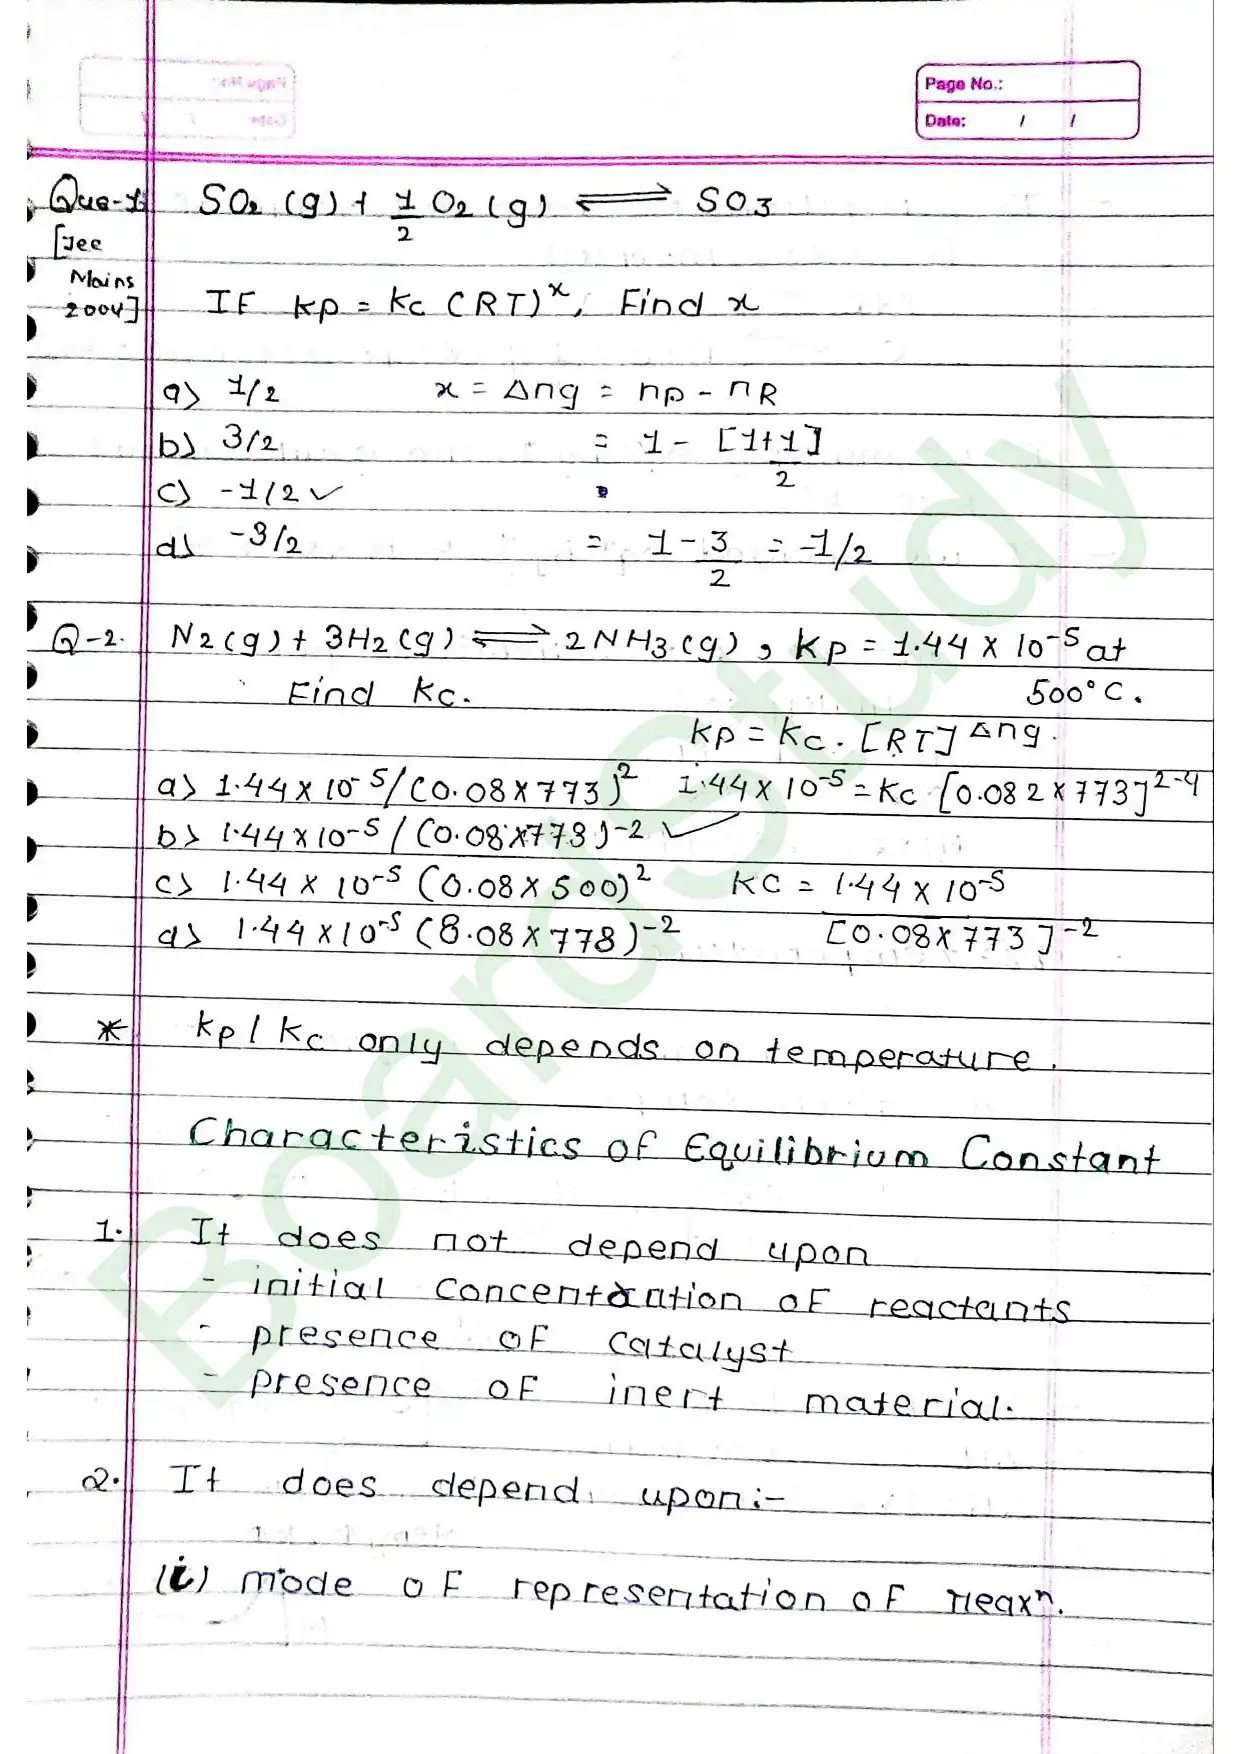 Page No.:
Date: / /
Que-1. SO2 (g) + 1/2 O2 (g) ⇌ SO3
[Jee Mains 2004]
IF kp = kc (RT)^x, Find x
a) 1/2 x = Δng = np - nR
b) 3/2 = 1 - [1+1/2]
c) -1/2 ✓
d) -3/2 = 1 - 3/2 = -1/2
Q-2. N2(g) + 3H2(g) ⇌ 2NH3(g), kp = 1.44 x 10^-5 at
Find kc. 500°C.
kp = kc. [RT]^Δng.
a) 1.44 x 10^-5/(0.08 x 773)^2 1.44 x 10^-5 = kc [0.082 x 773]^2-4
b) 1.44 x 10^-5 / (0.08 x 773)^-2 ✓
c) 1.44 x 10^-5 (0.08 x 500)^2 KC = 1.44 x 10^-5
d) 1.44 x 10^-5 (8.08 x 778)^-2 [0.08 x 773]^-2
* kp/kc only depends on temperature.
Characteristics of Equilibrium Constant
1. It does not depend upon
- initial concentration of reactants
- presence of catalyst
- presence of inert material.
2. It does depend upon:-
(i) mode of representation of reaxn.
BoardStudy